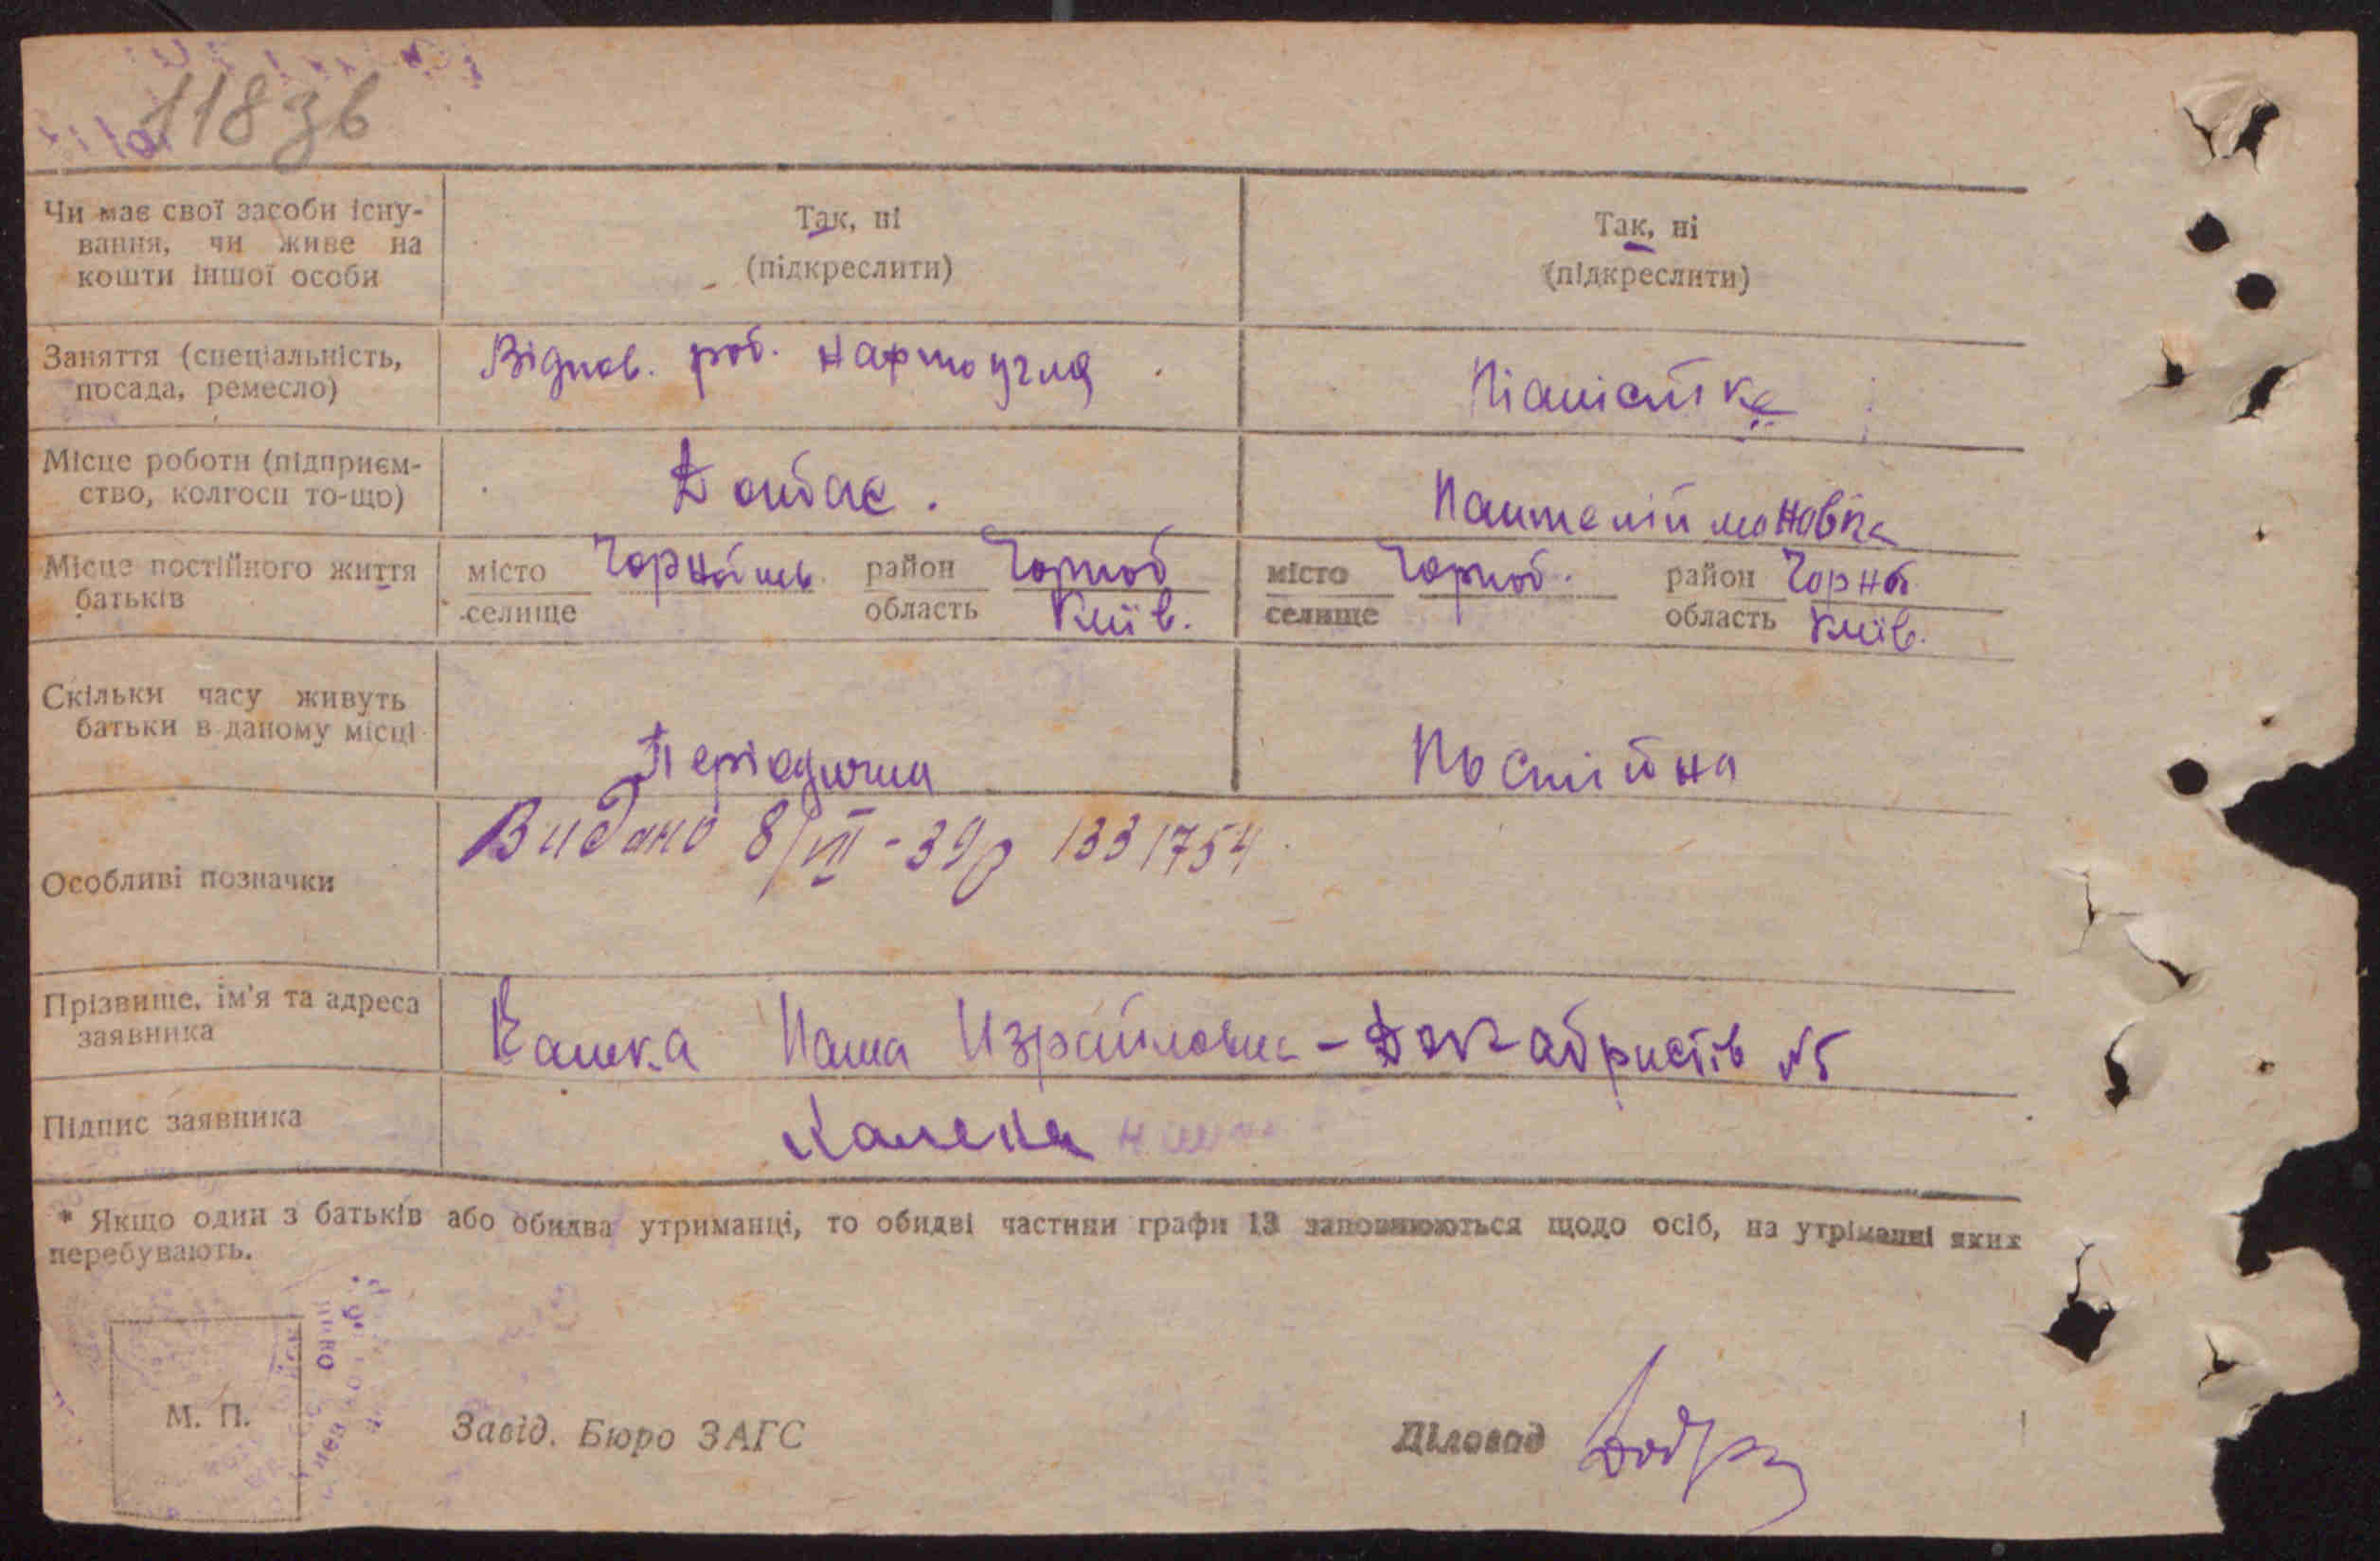 118 зв
Чи має свої засоби існу-
вання, чи живе на
кошти іншої особи
Так, ні
(підкреслити)
Так, ні
(підкреслити)
Заняття (спеціальність,
посада, ремесло)
Віднов. роб.
Піаністка
Місце роботи (підприєм-
ство, колгосп то-що)
Донбас.
Місце постійного життя
батьків
місто
селище
район Чорноб
область Київ.
місто Чорноб.
селище
район Чорнб
область Київ.
Скільки часу живуть
батьки в даному місці
Періодична
Постійна
Особливі позначки
Видано 8/VII-39р 1331754
Прізвище, ім'я та адреса
заявника
Израйловна - Декабристів №5
Підпис заявника
* Якщо один з батьків або обидва утриманці, то обидві частини графи 13 заповнюються щодо осіб, на утріманні яких
перебувають.
М. П.
Завід. Бюро ЗАГС
Діловод